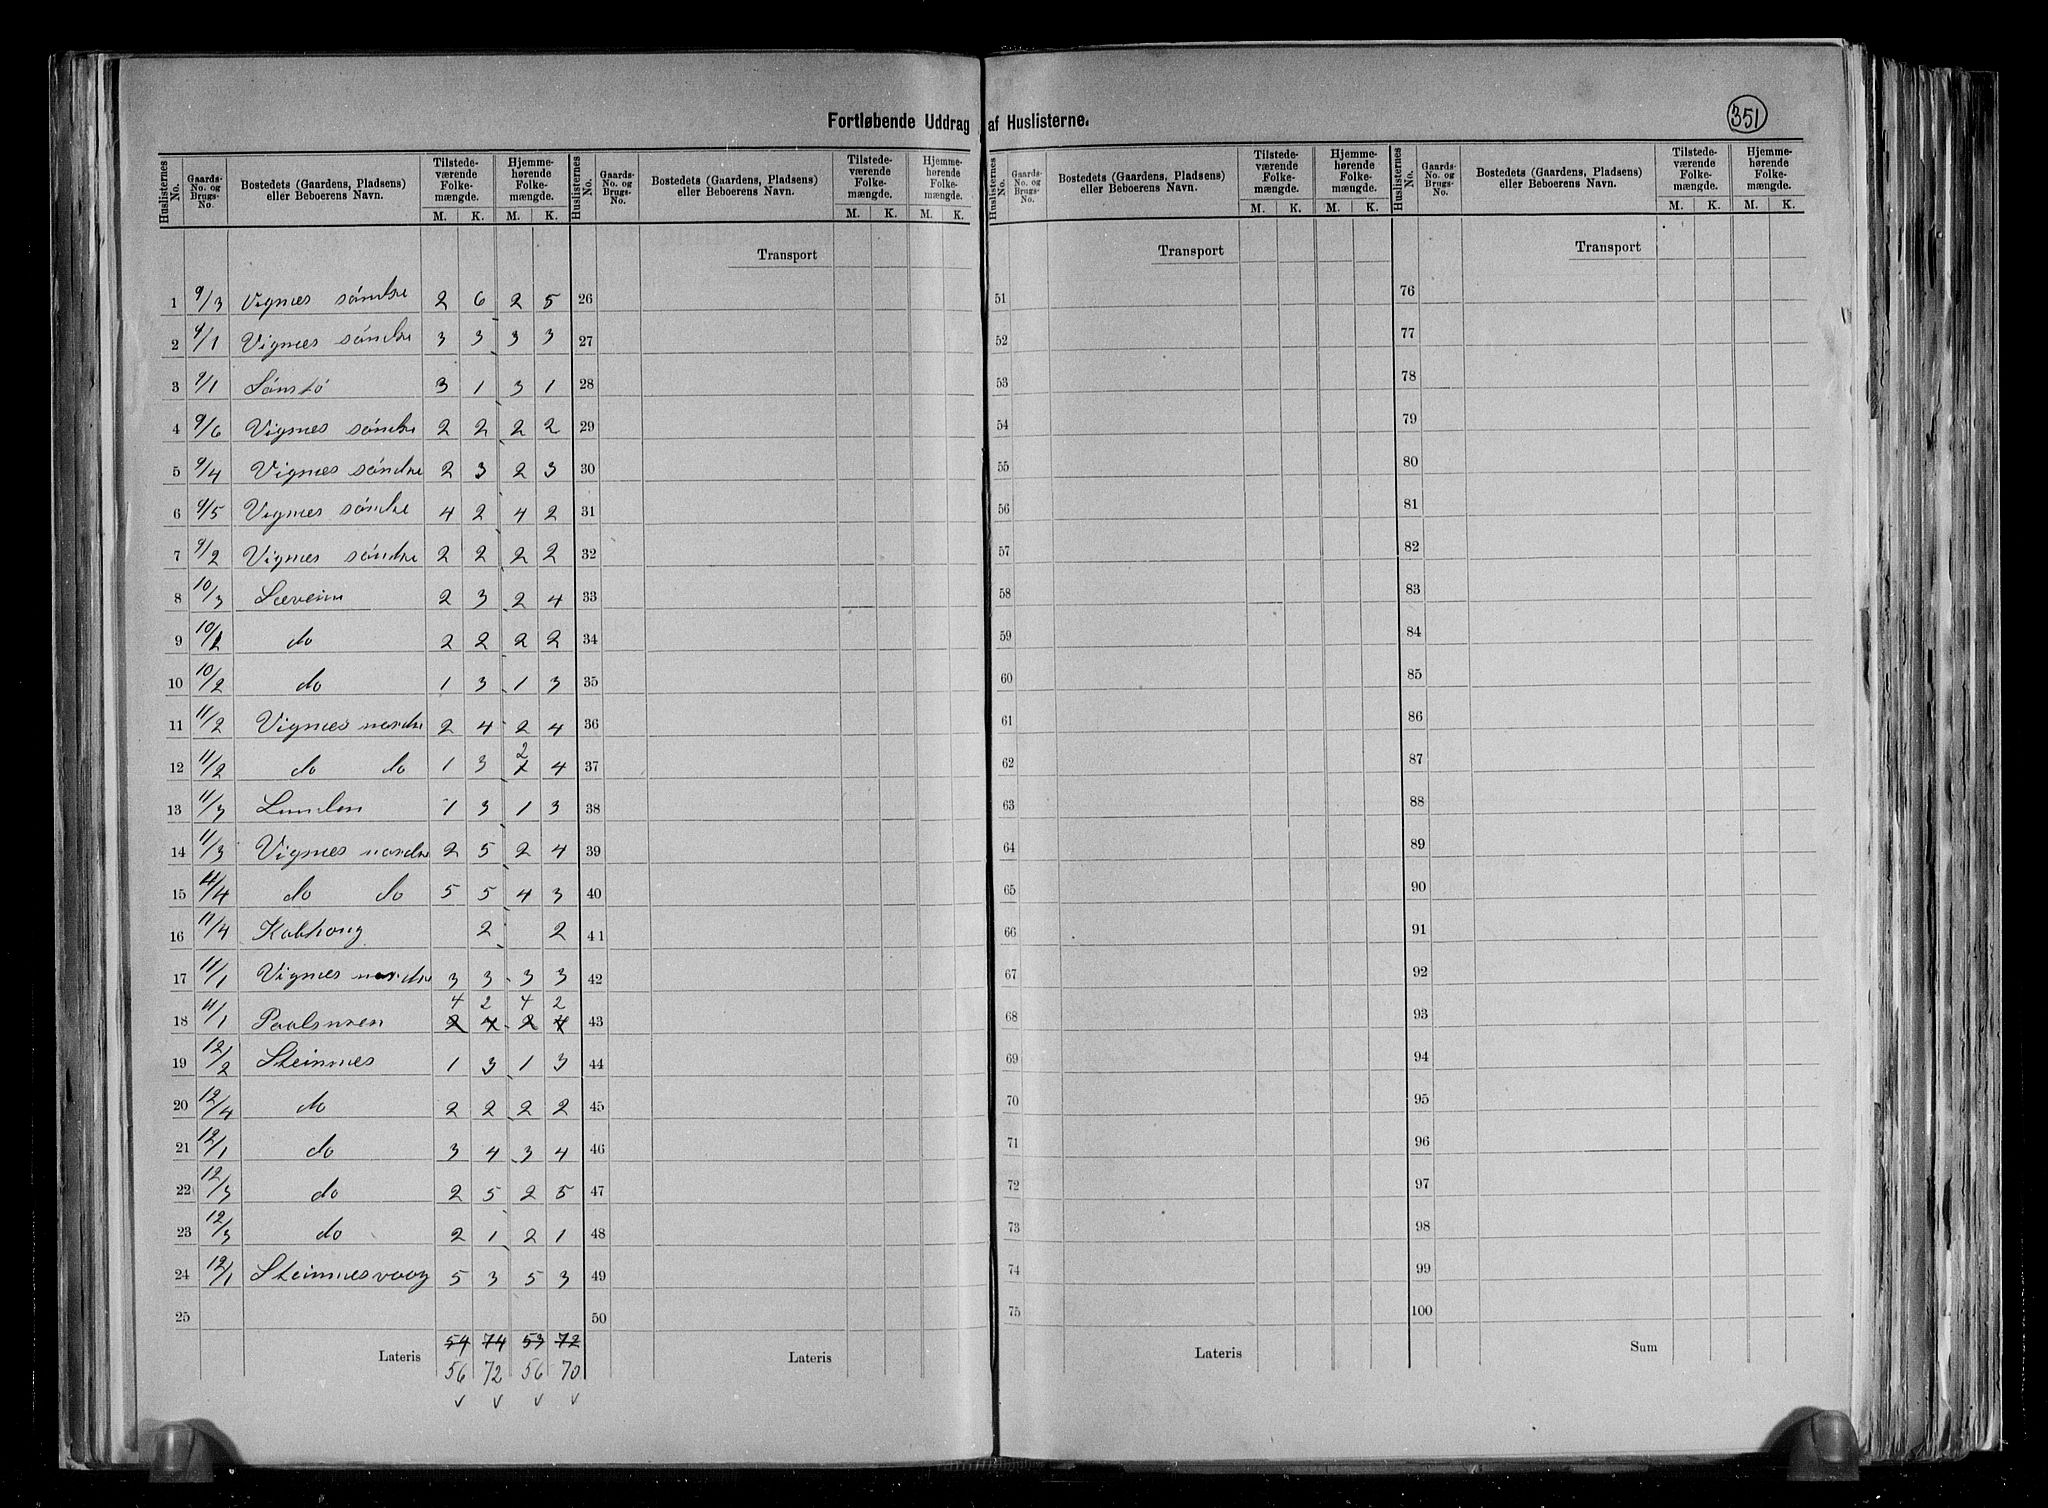 Fortløbende Uddrag af Huslisterne.
351
Huslisternes No. | Gaards-No. og Brugs-No. | Bostedets (Gaardens, Pladsens) eller Beboerens Navn. | Tilstedeværende Folkemængde. M. K. | Hjemmehørende Folkemængde. M. K.
1 9/3 Vignes søndre 2 6 2 5
2 9/1 Vignes søndre 3 3 3 3
3 9/1 Sønstø 3 1 3 1
4 9/6 Vignes søndre 2 2 2 2
5 9/4 Vignes søndre 2 3 2 3
6 9/5 Vignes søndre 4 2 4 2
7 9/2 Vignes søndre 2 2 2 2
8 10/3 Sæveim 2 3 2 4
9 10/1 do 2 2 2 2
10 10/2 do 1 3 1 3
11 11/2 Vignes nordre 2 4 2 4
12 11/2 do do 1 3 2 4
13 11/3 Lunden 1 3 1 3
14 11/3 Vignes nordre 2 5 2 4
15 11/4 do do 5 5 4 3
16 11/4 2 2
17 11/1 Vignes nordre 3 3 3 3
18 11/1 4 2 4 2
2 4 2 4
19 12/2 Steinnes 1 3 1 3
20 12/4 do 2 2 2 2
21 12/1 do 3 4 3 4
22 12/3 do 2 5 2 5
23 12/3 do 2 1 2 1
24 12/1 Steinnesvaag 5 3 5 3
25
Lateris 54 74 53 72
56 72 56 70
Huslisternes No. | Gaards-No. og Brugs-No. | Bostedets (Gaardens, Pladsens) eller Beboerens Navn. | Tilstedeværende Folkemængde. M. K. | Hjemmehørende Folkemængde. M. K.
Transport
26
27
28
29
30
31
32
33
34
35
36
37
38
39
40
41
42
43
44
45
46
47
48
49
50
Lateris
Huslisternes No. | Gaards-No. og Brugs-No. | Bostedets (Gaardens, Pladsens) eller Beboerens Navn. | Tilstedeværende Folkemængde. M. K. | Hjemmehørende Folkemængde. M. K.
Transport
51
52
53
54
55
56
57
58
59
60
61
62
63
64
65
66
67
68
69
70
71
72
73
74
75
Lateris
Huslisternes No. | Gaards-No. og Brugs-No. | Bostedets (Gaardens, Pladsens) eller Beboerens Navn. | Tilstedeværende Folkemængde. M. K. | Hjemmehørende Folkemængde. M. K.
Transport
76
77
78
79
80
81
82
83
84
85
86
87
88
89
90
91
92
93
94
95
96
97
98
99
100
Sum